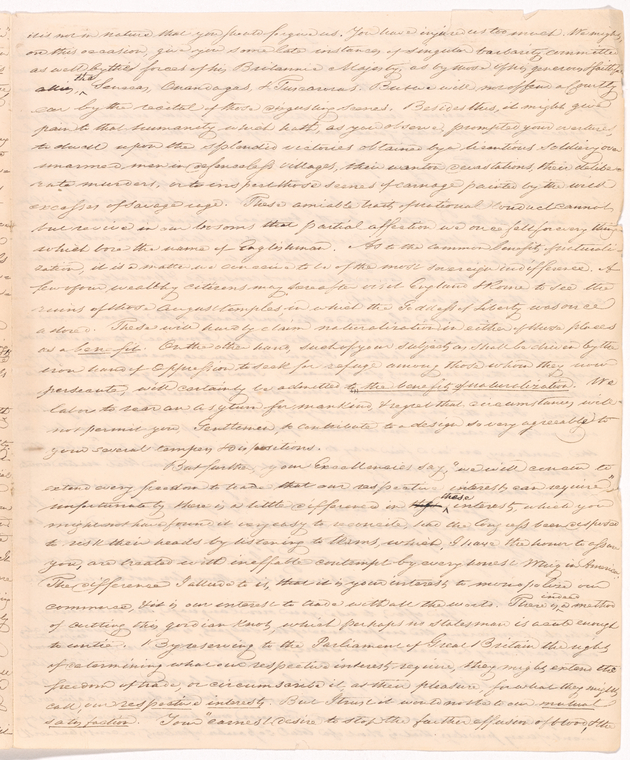 it is not in nature that you should forgive us. You have injured us too much. We might
on this occasion, give you some late instances of singular barbarity, committed
as well by the forces of his Britannic Majesty, as by those of his generous & faithful
allies, the Senecas, Onondagas, & Tuscaroras. But we will not offend a courtly
ear by the recital of those disgusting scenes. Besides this, it might give
pain to that humanity which hath, as you observe, prompted your overtures
to dwell upon the splendid victories obtained by a licentious soldiery over
unarmed men in defenceless villages, their wanton devastations, their delibe-
rate murders, or to inspect those scenes of carnage painted by the wild
excesses of savage rage. These amiable traits of national conduct cannot
but revive in our bosoms that partial affection we once felt for every thing
which bore the name of Englishman. As to the common benefit of naturali-
zation, it is a matter we conceive to be of the most sovereign indifference. A
few of our wealthy citizens may hereafter visit England & Rome to see the
ruins of those august temples in which the Goddess of Liberty was once
adored. These will hardly claim naturalization in either of those places
as a benefit. On the other hand, such of your subjects as shall be driven by the
iron hand of Oppression to seek for refuge among those whom they now
persecute, will certainly be admitted to the benefits of naturalization. We
labor to rear an asylum for mankind, & regret that circumstances will
not permit you, Gentlemen, to contribute to a design so very agreeable to
your several tempers & dispositions.
But further, your Excellencies say, "we will concur to
extend every freedom to trade that our respective interests can require".
unfortunately there is a little difference in these interests, which you
might not have found it very easy to reconcile, had the Congress been disposed
to risk their heads by listening to terms, which I have the honor to assure
you, are treated with ineffable contempt by every honest Whig in America.
The difference I allude to is, that it is your interest to monopolize our
commerce, & it is our interest to trade with all the world. There is indeed a method
of cutting this gordian knot, which perhaps no statesman is acute enough
to untie. By reserving to the Parliament of Great Britain the right
of determining what our respective interests require, they might extend the
freedom of trade, or circumscribe it, at their pleasure, for what they might
call our respective interests. But I trust it would not be to our mutual
satisfaction. Your "earnest desire to stop the farther effusion of blood, & the